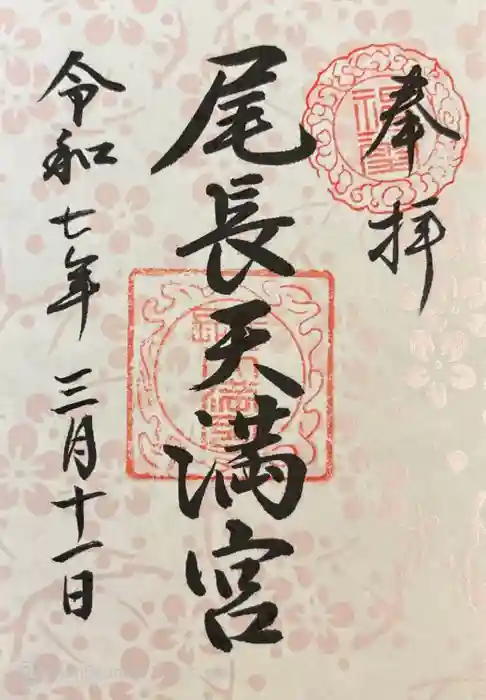 奉拝
尾長天満宮
令和七年三月十一日